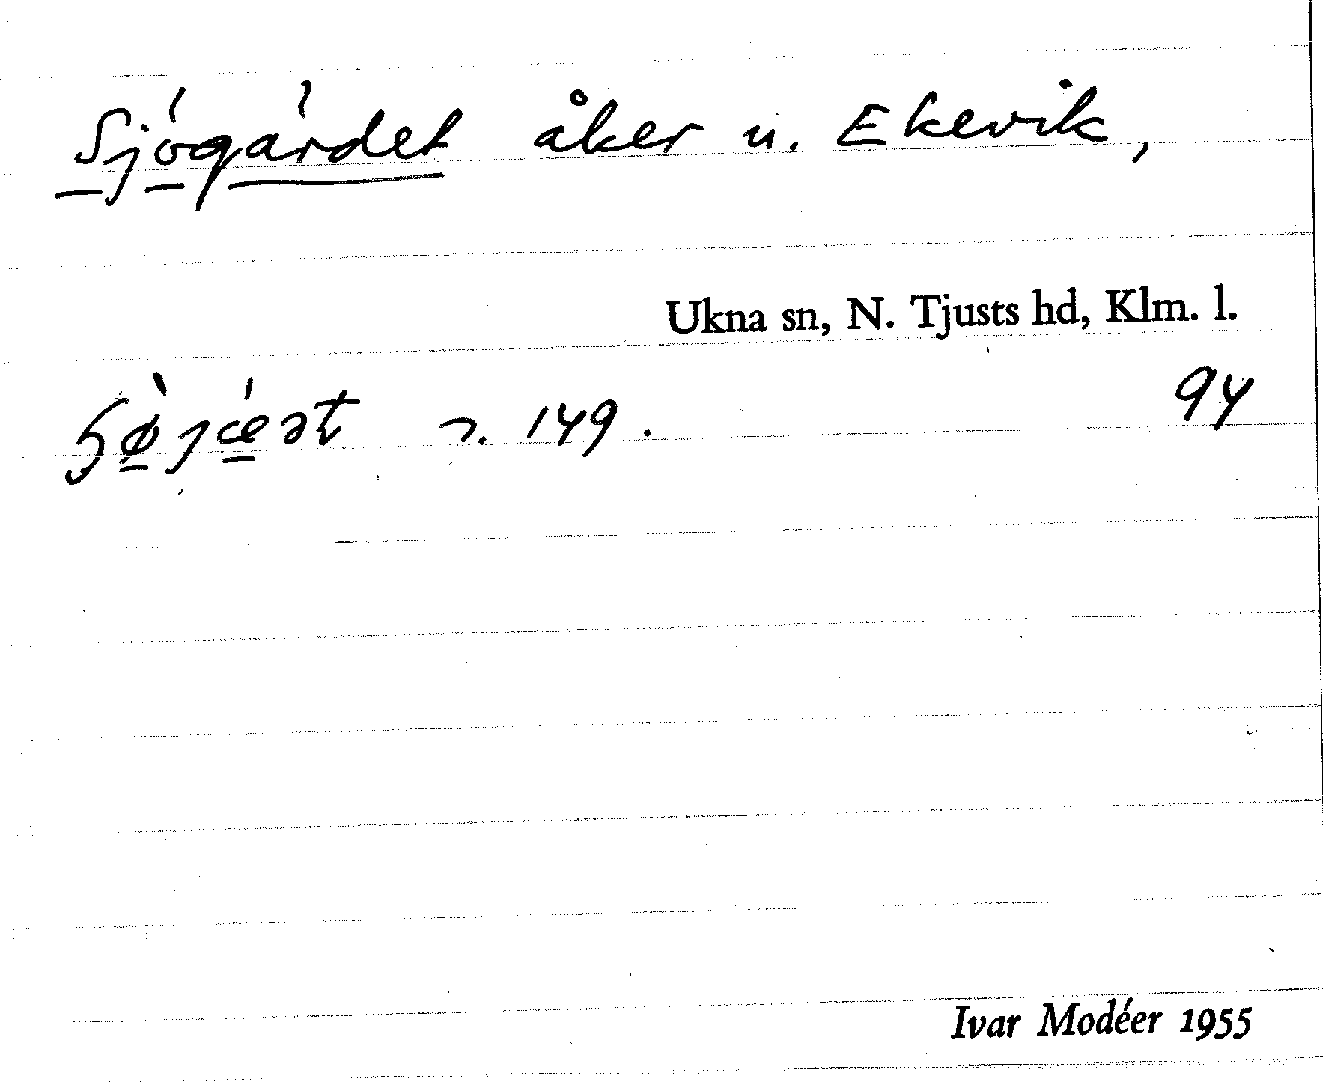 Sjögärdet åker u. Ekevik,
Ukna sn, N. Tjusts hd, Klm. l.
149. 94
Ivar Modéer 1955